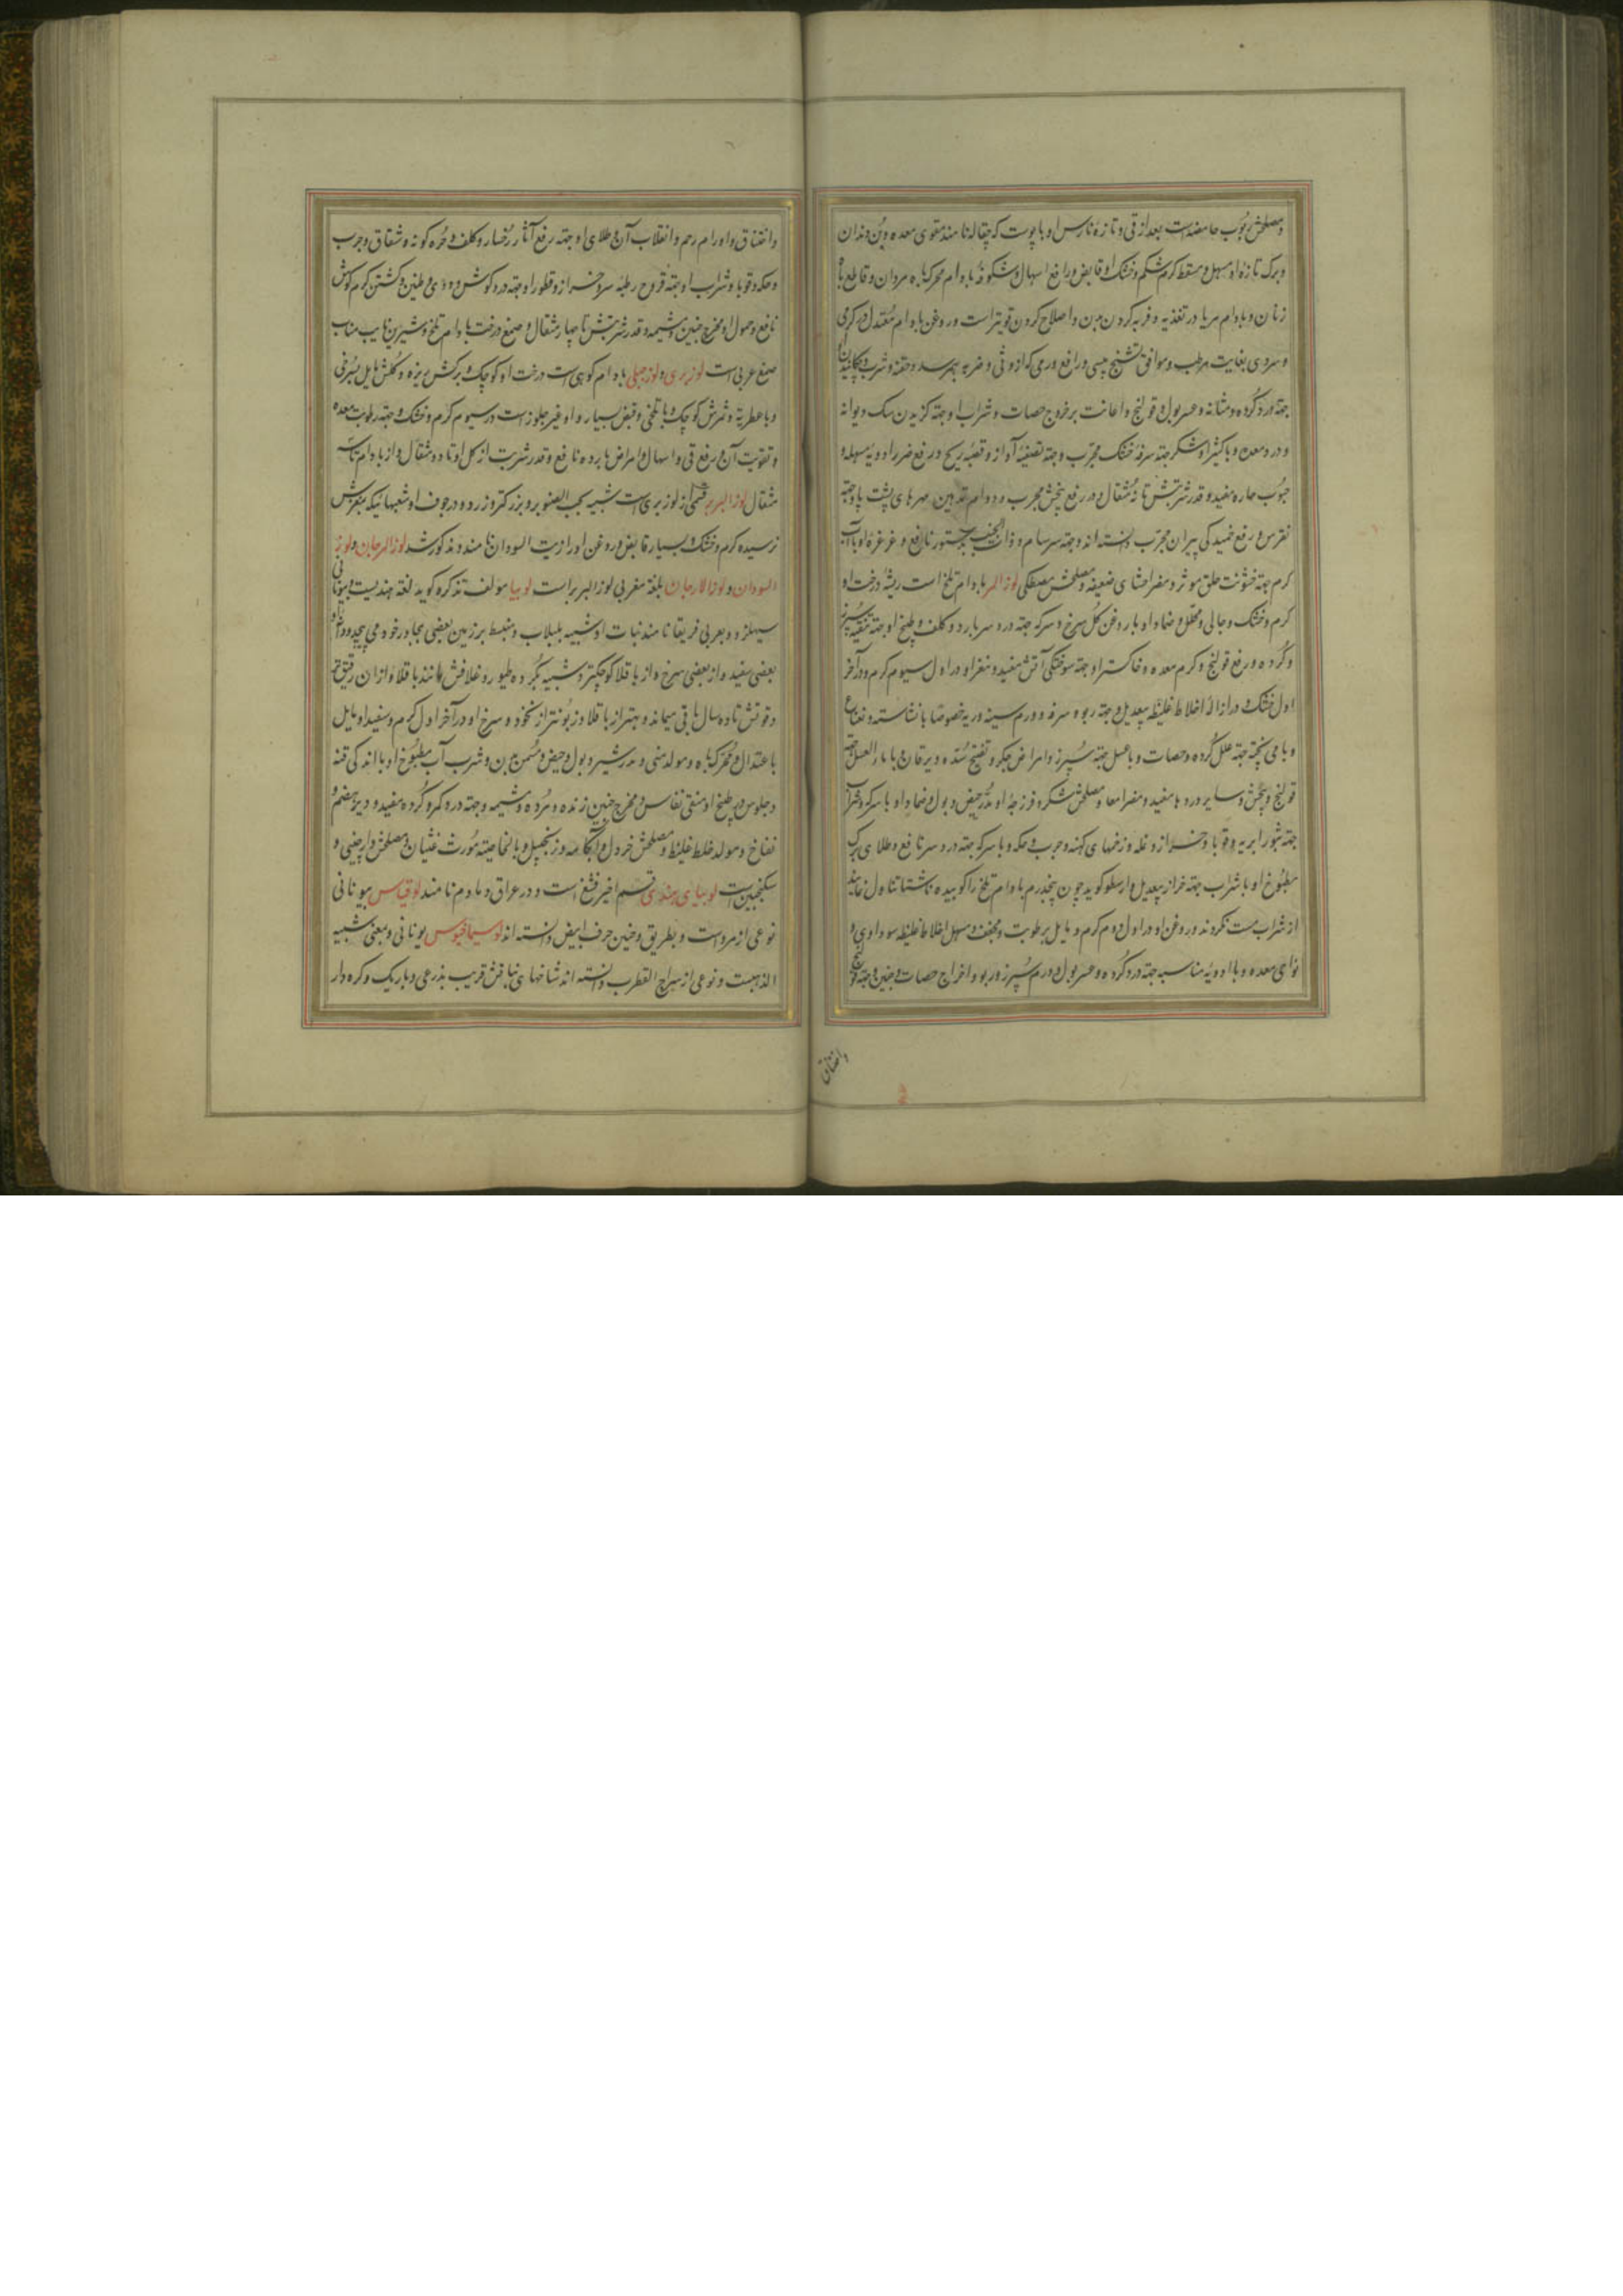 ومصلحش ربوب حامضه است بعد از قی و تازهٔ نارس او با پوست که چقاله نامند مقوی معده و بن دندان
و برک تازهٔ او مسهل و مسقط کرم شکم و خشک او قابض و رافع اسهال و شکوفهٔ بادام محرک باه مردان و قاطع باه
زنان و بادام مربا در تغذیه و فربه کردن بدن و اصلاح کردن قویتر است و روغن بادام معتدل در کرمی
و سردی بغایت مرطب و موافق تشنج یبسی و رافع وردی که از وثی و ضربه بهمرسد و حقنه و شرب و چکانیدن او
جهة درد کرده و مثانه و عسر بول و قولنج و اعانت بر خروج حصات و شراب او جهة کزیدن سک دیوانه
و درد معده و با کثیرا و شکر جهة سرفهٔ خشک مجرّب و جهة تصفیهٔ آواز و قصبهٔ ریه و رفع ضرر ادویهٔ مسهله و
حبوب حاره مفید و قدر شربتش تا نُه مثقال و در رفع پیچش مجرب و دوام تدهین مهرهای پشت با و جهة
نقرس و رفع خمیدکی پیران مجرّب دانسته‌اند و جهة سرسام و ذات الجنب بدستور نافع و غرغرهٔ او با آب
کرم جهة خشونت حلق موثر و مضر احشای ضعیفه و مصلحش مصطکی لوز المر بادام تلخ است ریشهٔ درخت او
کرم و خشک و جالی و محلل و ضماد او با روغن کل سرخ و سرکه جهة درد سر بارد و کلف و طبخ او جهة تنقیهٔ سپرز
و کرده و رفع قولنج و کرم معده و خاکستر او جهة سوختکی آتش مفید و مغز او در اول سیوم کرم و در آخر
اول خشک و در ازالهٔ اخلاط غلیظه بیعدیل و جهة ربو و سرفه و ورم سینه و ریه خصوصا با نشاسته و نعناع
و با می پخته جهة علل کرده و حصات و با عسل جهة سپرز و امراض جکر و تفتیح سده و یرقان و با ماء العسل جهة
قولنج و پیچش و سایر دردها مفید و مضر امعا و مصلحش شکر و فرزجهٔ او مدر حیض و بول و ضماد او با سرکه و شراب
جهة بثور ابریه و قوبا و حزاز و نمله و زخمهای کهنه و جرب و حکه و با سرکه جهة درد سر نافع و طلای برک
مطبوخ او با شراب جهة خراز بیعدیل و ارسطو کوید چون پنجدرم بادام تلخ را کوبیده ناشتا تناول نمایند
از شراب مست نکردند و روغن او در اول دوم کرم و مایل برطوبت و مجفف و مسهل اخلاط غلیظه سوداوی و
نواحی معده و با ادویهٔ مناسبه جهة درد کرده و عسر بول و ورم سپرز و ربو و اخراج حصات و جنین و جهة قولنج
واختناق
و اختناق و اورام رحم و انقلاب آن و طلای او جهة رفع آثار رخسار و کلف و حمرهٔ کونه و شقاق و جرب
و حکه و قوبا و شراب او جهة قروح رطبهٔ سر و حزاز و قطور او جهة درد کوش و دوی و طنین و کشتن کرم کوش
نافع و حمول او مخرج جنین و مشیمه و قدر شربتش تا چهار مثقال و صمغ درخت بادام تلخ و شیرین نایب مناب
صمغ عربی است لوز بری و لوز جبلی بادام کوهی است درخت او کوچک و برکش ریزه و کلش مایل بسرخی
و با عطریة و ثمرش کوچک و با تلخی و قبض بسیار و او غیر جلوز است در سیوم کرم و خشک و جهة رطوبت معده
و تقویت آن و رفع قی و اسهال و امراض بارده نافع و قدر شربت از کل او تا دو مثقال و از بادام تا سه
مثقال لوز البربر قسمی از لوز بری است شبیه بحب الصنوبر و بزرکتر و زرد و در جوف او شعبها نیکه مغزش
نرسیده کرم و خشک و بسیار قابض و روغن او را زیت السودان نامند و مذکور شد لوز المرجان و لوز
السودان و لوز الارجان بلغة مغربی لوز البربر است لوبیا مولف تذکره کوید لغة هندیست و بیونانی
سیهلز و بعربی فریقا نامند نبات او شبیه بلبلاب و منبسط بر زمین بعضی بمجاور خود می پیچد و دانهٔ او
بعضی سفید و از بعضی سرخ و از باقلا کوچکتر و شبیه بکرده طیور و غلافش مانند باقلا و از ان رقیقتر
و قوتش تا دو سال باقی میماند و بهتر از باقلا و زبونتر از نخود و سرخ او در آخر اول کرم و سفید او مایل
باعتدال و محرک باه و مولد منی و مدر شیر و بول و حیض و مسمن بدن و شرب آب مطبوخ او با اندکی قنه
و جلوس در طبخ او منقی نفاس و مخرج جنین زنده و مرده و مشیمه و جهة درد کمر و کرده مفید و دیر هضم و
نفاخ و مولد خلط غلیظ و مصلحش خردل و آبکامه و زنجبیل و بالخاصیته مورث غثیان و مصلحش دارچینی و
سکنجبین است لوبیای هندی قسم اخیر فشغ است و در عراق دمادم نامند لوقیاس بیونانی
نوعی از مرو است و بطریق و حنین حرف ابیض دانسته‌اند لوسیماخیوس یونانی و بمعنی شبیه
الذهبست و نوعی از سراج القطرب دانسته‌اند شاخهای نباتش قریب بذرعی و باریک و کره دار